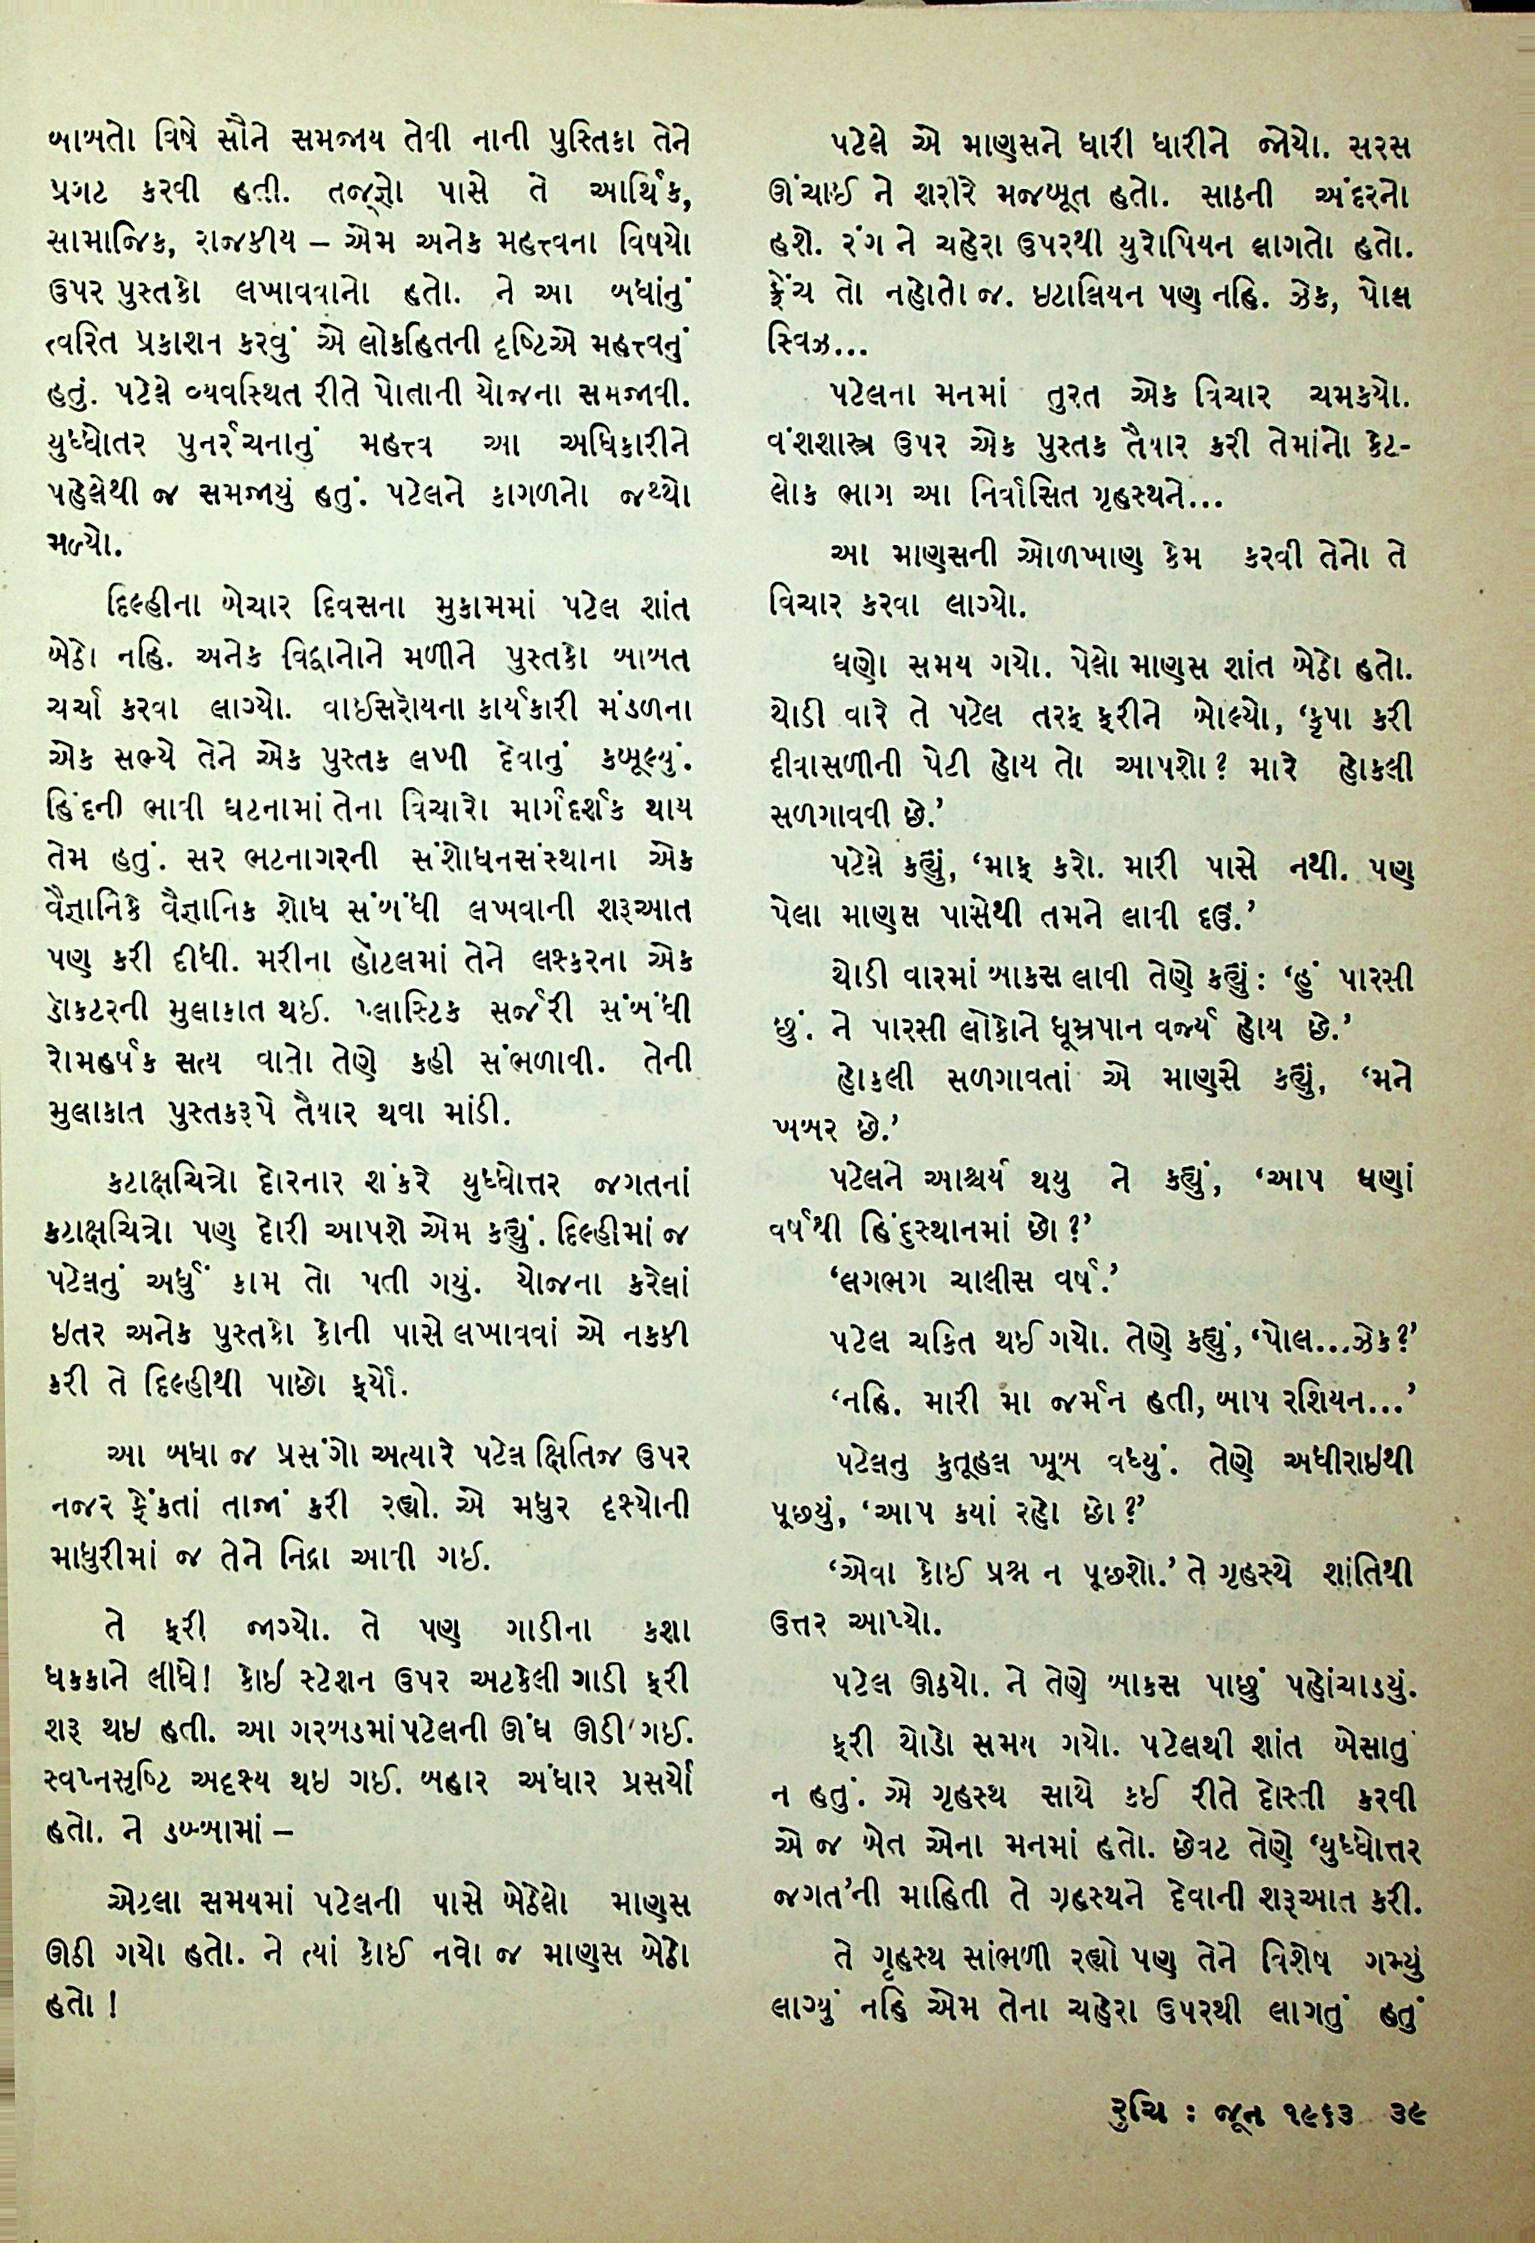 બાબતો વિષે સૌને સમજાય તેવી નાની પુસ્તિકા તેને
પ્રગટ કરવી હતી. તજ્જ્ઞો પાસે તે આર્થિક,
સામાજિક, રાજકીય – એમ અનેક મહત્ત્વના વિષયો
ઉપર પુસ્તકો લખાવવાનો હતો. ને આ બધાંનું
ત્વરિત પ્રકાશન કરવું એ લોકહિતની દૃષ્ટિએ મહત્ત્વનું
હતું. પટેલે વ્યવસ્થિત રીતે પોતાની યોજના સમજાવી.
યુધ્ધોતર પુનર્રચનાનું મહત્ત્વ આ અધિકારીને
પહેલેથી જ સમજાયું હતું. પટેલને કાગળનો જથ્થો
મળ્યો.
દિલ્હીના બેચાર દિવસના મુકામમાં પટેલ શાંત
બેઠો નહિ. અનેક વિદ્વાનોને મળીને પુસ્તકો બાબત
ચર્ચા કરવા લાગ્યો. વાઈસરૉયના કાર્યકારી મંડળના
એક સભ્યે તેને એક પુસ્તક લખી દેવાનું કબૂલ્યું.
હિંદની ભાવી ઘટનામાં તેના વિચારો માર્ગદર્શક થાય
તેમ હતું. સર ભટનાગરની સંશોધનસંસ્થાના એક
વૈજ્ઞાનિકે વૈજ્ઞાનિક શોધ સંબંધી લખવાની શરૂઆત
પણ કરી દીધી. મરીના હૉટલમાં તેને લશ્કરના એક
ડૉકટરની મુલાકાત થઈ. પ્લાસ્ટિક સર્જરી સંબંધી
રોમહર્ષક સત્ય વાતો તેણે કહી સંભળાવી. તેની
મુલાકાત પુસ્તકરૂપે તૈયાર થવા માંડી.
કટાક્ષચિત્રો દોરનાર શંકરે યુધ્ધોત્તર જગતનાં
કટાક્ષચિત્રો પણ દોરી આપશે એમ કહ્યું. દિલ્હીમાં જ
પટેલનું અર્ધું કામ તો પતી ગયું. યોજના કરેલાં
ઇતર અનેક પુસ્તકો કોની પાસે લખાવવાં એ નકકી
કરી તે દિલ્હીથી પાછો ફર્યો.
આ બધા જ પ્રસંગો અત્યારે પટેલ ક્ષિતિજ ઉપર
નજર ફેંકતાં તાજાં કરી રહ્યો. એ મધુર દૃશ્યોની
માધુરીમાં જ તેને નિદ્રા આવી ગઈ.
તે ફરી જાગ્યો. તે પણ ગાડીના કશા
ધકકાને લીધે! કોઈ સ્ટેશન ઉપર અટકેલી ગાડી ફરી
શરૂ થઇ હતી. આ ગરબડમાં પટેલની ઊંઘ ઊડી ગઈ.
સ્વપ્નસૃષ્ટિ અદૃશ્ય થઇ ગઈ. બહાર અંધાર પ્રસર્યો
હતો. ને ડબ્બામાં –
એટલા સમયમાં પટેલની પાસે બેઠેલો માણસ
ઊઠી ગયો હતો. ને ત્યાં કોઈ નવો જ માણસ બેઠો
હતો !
પટેલે એ માણસને ધારી ધારીને જોયો. સરસ
ઊંચાઈ ને શરીરે મજબૂત હતો. સાઠની અંદરનો
હશે. રંગ ને ચહેરા ઉપરથી યુરોપિયન લાગતો હતો.
ફ્રેંચ તો નહોતો જ. ઇટાલિયન પણ નહિ. ઝેક, પોલ
સ્વિઝ...
પટેલના મનમાં તુરત એક વિચાર ચમકયો.
વંશશાસ્ત્ર ઉપર એક પુસ્તક તૈયાર કરી તેમાંનો કેટ-
લોક ભાગ આ નિર્વાસિત ગૃહસ્થને...
આ માણસની ઓળખાણ કેમ કરવી તેનો તે
વિચાર કરવા લાગ્યો.
ઘણો સમય ગયો. પેલો માણસ શાંત બેઠો હતો.
થોડી વારે તે પટેલ તરફ ફરીને બોલ્યો, ‘કૃપા કરી
દીવાસળીની પેટી હોય તો આપશો? મારે હોકલી
સળગાવવી છે.’
પટેલે કહ્યું, ‘માફ કરો. મારી પાસે નથી. પણ
પેલા માણસ પાસેથી તમને લાવી દઉં.’
થોડી વારમાં બાકસ લાવી તેણે કહ્યું: ‘હું પારસી
છું. ને પારસી લોકોને ધૂમ્રપાન વર્જ્ય હોય છે.’
હોકલી સળગાવતાં એ માણસે કહ્યું, ‘મને
ખબર છે.’
પટેલને આશ્ચર્ય થયુ ને કહ્યું, ‘આપ ઘણાં
વર્ષથી હિંદુસ્થાનમાં છો?’
‘લગભગ ચાલીસ વર્ષ.’
પટેલ ચકિત થઈ ગયો. તેણે કહ્યું, ‘પોલ...ઝેક?’
‘નહિ. મારી મા જર્મન હતી, બાપ રશિયન...’
પટેલનુ કુતૂહલ ખૂબ વધ્યું. તેણે અધીરાઇથી
પૂછયું, ‘આપ કયાં રહો છો?’
‘એવા કોઈ પ્રશ્ન ન પૂછશો.’ તે ગૃહસ્થે શાંતિથી
ઉત્તર આપ્યો.
પટેલ ઊઠયો. ને તેણે બાકસ પાછું પહોંચાડયું.
ફરી થોડો સમય ગયો. પટેલથી શાંત બેસાતું
ન હતું. એ ગૃહસ્થ સાથે કઈ રીતે દોસ્તી કરવી
એ જ બેત એના મનમાં હતો. છેવટ તેણે ‘યુધ્ધોત્તર
જગત’ની માહિતી તે ગૃહસ્થને દેવાની શરૂઆત કરી.
તે ગૃહસ્થ સાંભળી રહ્યો પણ તેને વિશેષ ગમ્યું
લાગ્યું નહિ એમ તેના ચહેરા ઉપરથી લાગતું હતું
રુચિ : જૂન ૧૯૬૩ ૩૯